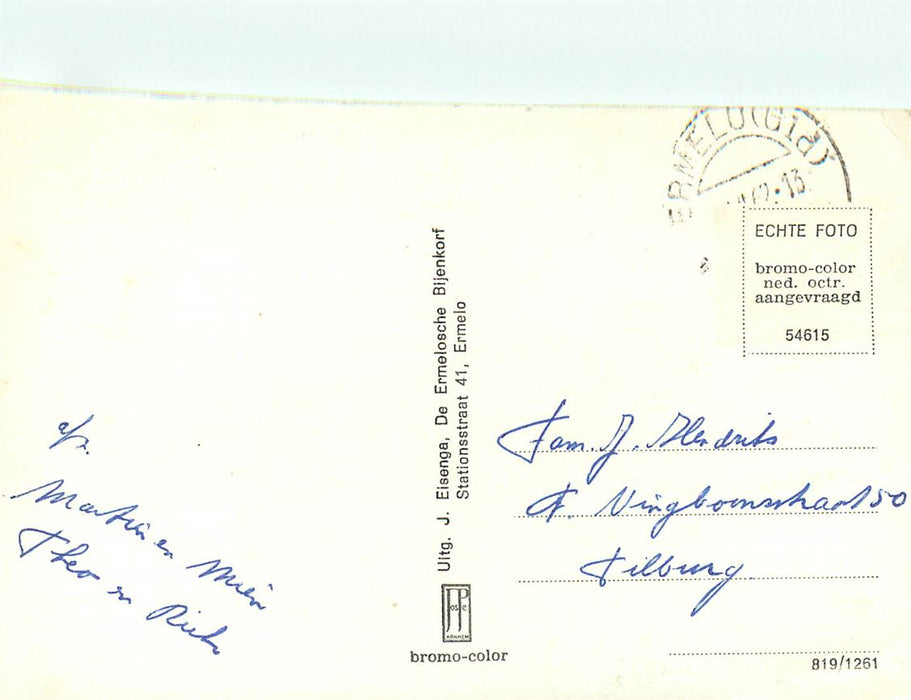 ERMELO (Gld)
62.13
ECHTE FOTO
bromo-color
ned. octr.
aangevraagd
54615
Uitg. J. Eisenga, De Ermelosche Bijenkorf
Stationsstraat 41, Ermelo
afz.
Martin en Mien
Theo en
Fam. J. Hendriks
Vingboonsstraat 50
Tilburg
JosPe
ARNHEM
bromo-color
819/1261